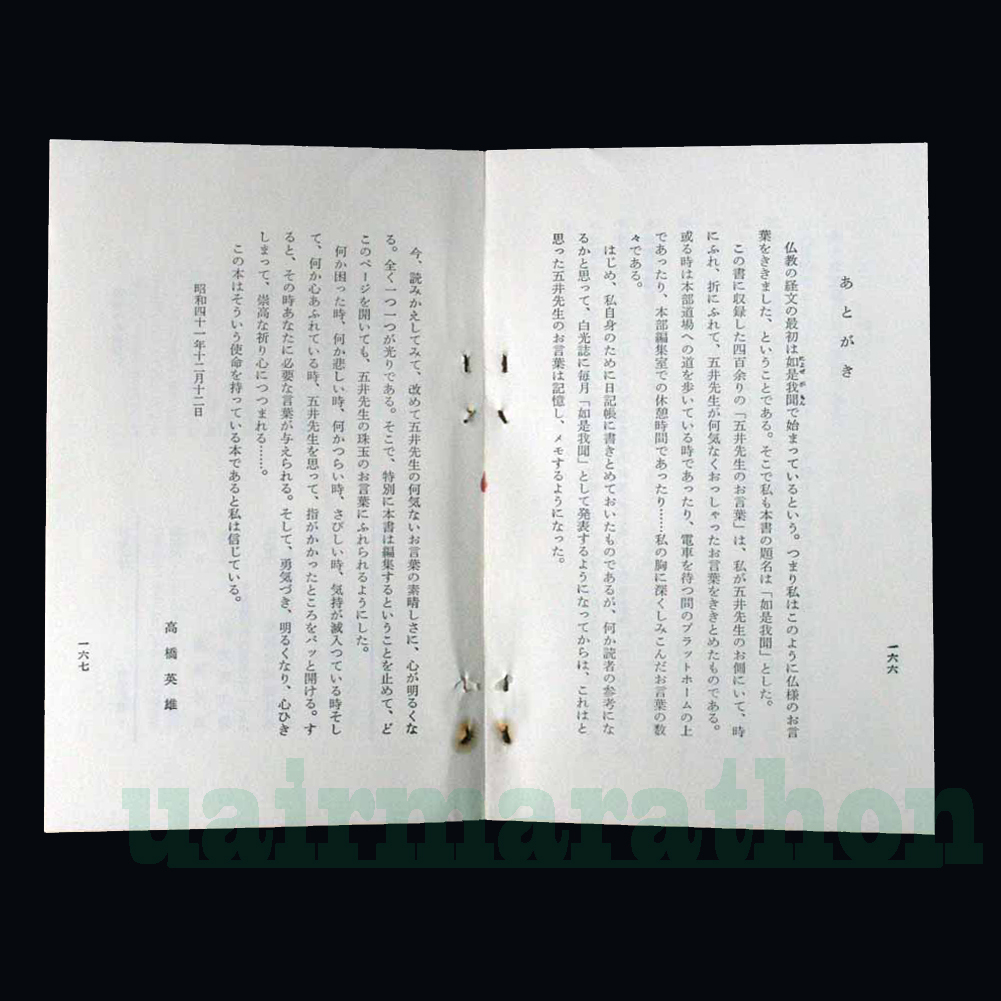 あとがき
仏教の経文の最初は如是我聞で始まっているという。つまり私はこのように仏様のお言
葉をききました、ということである。そこで私も本書の題名は「如是我聞」とした。
この書に収録した四百余りの「五井先生のお言葉」は、私が五井先生のお側にいて、時
にふれ、折にふれて、五井先生が何気なくおっしゃったお言葉をききとめたものである。
或る時は本部道場への道を歩いている時であったり、電車を待つ間のプラットホームの上
であったり、本部編集室での休憩時間であったり……私の胸に深くしみこんだお言葉の数
々である。
はじめ、私自身のために日記帳に書きとめておいたものであるが、何か読者の参考にな
るかと思って、白光誌に毎月「如是我聞」として発表するようになってからは、これはと
思った五井先生のお言葉は記憶し、メモするようになった。
一六六
今、読みかえしてみて、改めて五井先生の何気ないお言葉の素晴しさに、心が明るくな
る。全く一つ一つが光りである。そこで、特別に本書は編集するということを止めて、ど
このページを開いても、五井先生の珠玉のお言葉にふれられるようにした。
何か困った時、何か悲しい時、何かつらい時、さびしい時、気持が滅入つている時そし
て、何か心あふれている時、五井先生を思って、指がかかったところをパッと開ける。す
ると、その時あなたに必要な言葉が与えられる。そして、勇気づき、明るくなり、心ひき
しまって、崇高な祈り心につつまれる……。
この本はそういう使命を持っている本であると私は信じている。
昭和四十一年十二月十二日
高橋英雄
一六七
uairmarathon